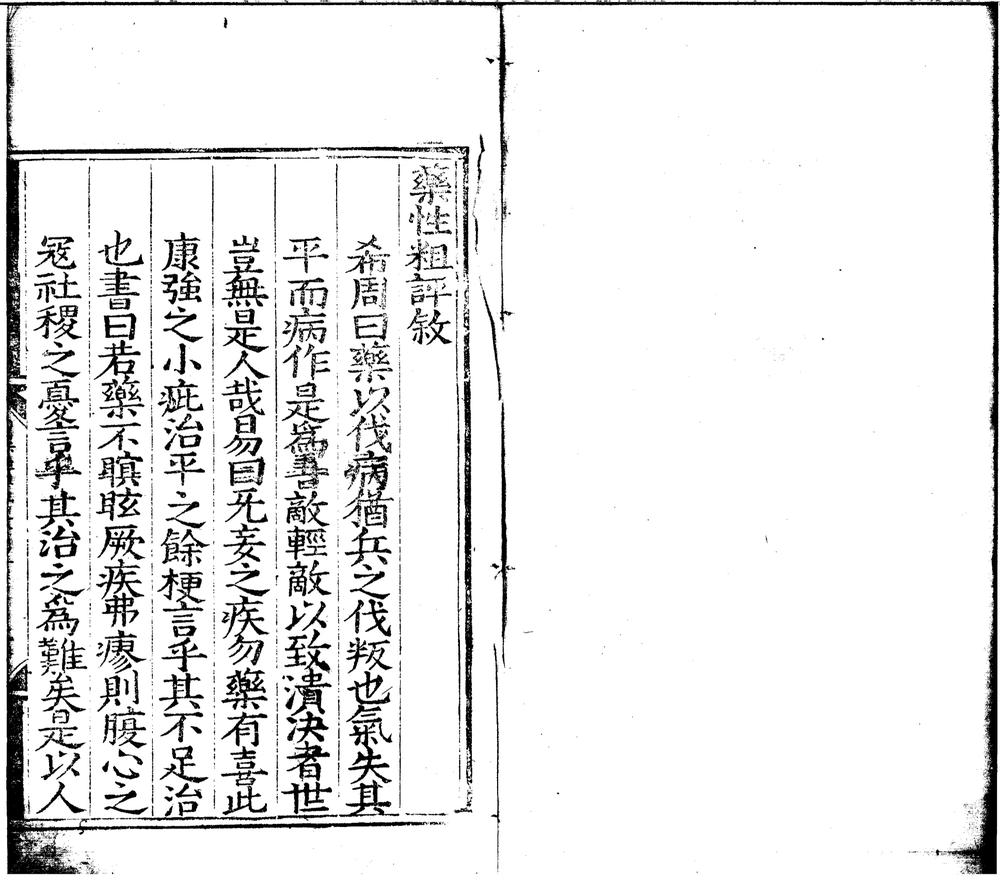 藥性粗評敘
希周曰藥以伐病猶兵之伐叛也氣失其
平而病作是爲害敵輕敵以致潰決者世
豈無是人哉易曰旡妄之疾勿藥有喜此
康強之小疵治平之餘梗言乎其不足治
也書曰若藥不瞑眩厥疾弗瘳則腹心之
寇社稷之憂言乎其治之爲難矣是以人